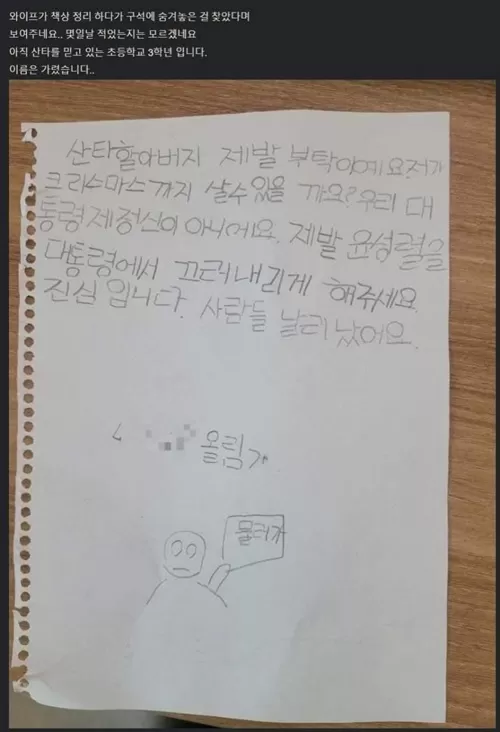 와이프가 책상 정리 하다가 구석에 숨겨놓은 걸 찾았다며
보여주네요.. 몇일날 적었는지는 모르겠네요
아직 산타를 믿고 있는 초등학교 3학년 입니다.
이름은 가렸습니다..
산타할아버지 제발 부탁이예요.저가
크리스마스까지 살수 있을 까요? 우리 대
통령 제정신이 아니에요. 제발 윤성렬을
대통령에서 끄러내리게 해주세요.
진심 입니다. 사람들 날리 났어요.
올림
물러가